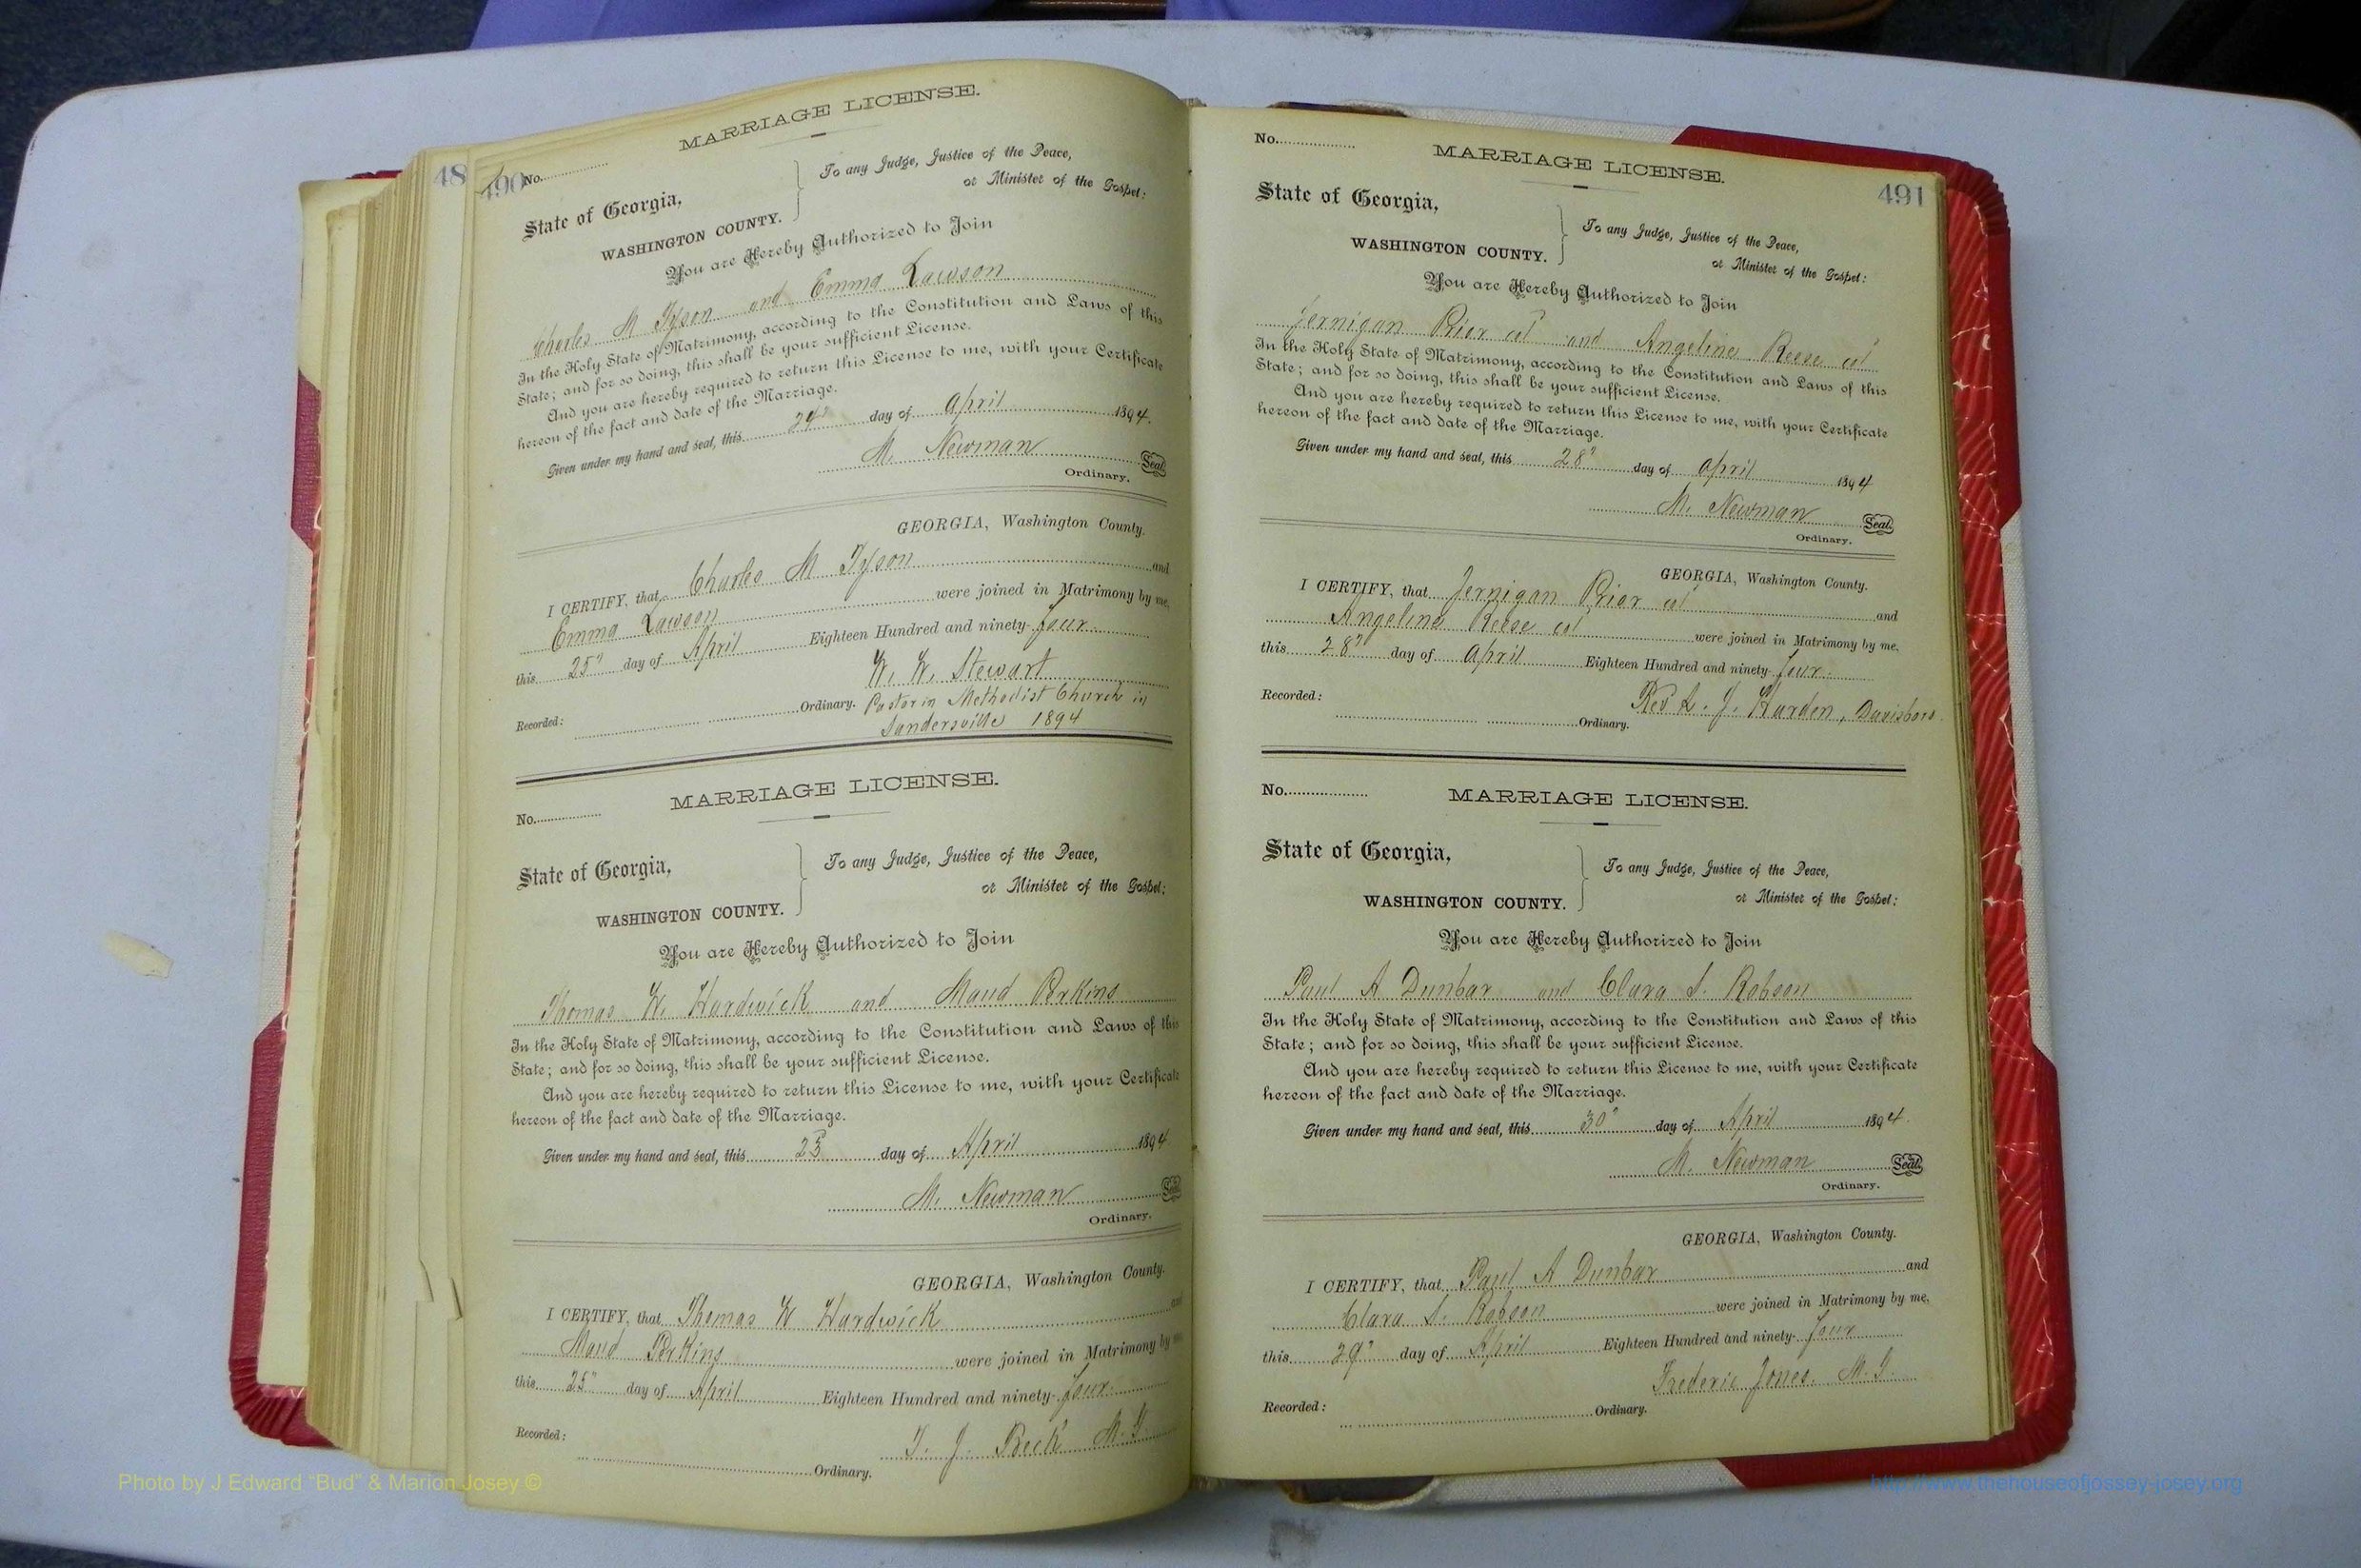 48
490
MARRIAGE LICENSE.
No.
State of Georgia,
WASHINGTON COUNTY.
To any Judge, Justice of the Peace,
or Minister of the Gospel:
You are Hereby Authorized to Join
Charles M Tyson and Emma Lawson
In the Holy State of Matrimony, according to the Constitution and Laws of this
State; and for so doing, this shall be your sufficient License.
And you are hereby required to return this License to me, with your Certificate
hereon of the fact and date of the Marriage.
Given under my hand and seal, this day of April 1894.
M. Newman Seal
Ordinary.
GEORGIA, Washington County.
I CERTIFY, that Charles M Tyson and
Emma Lawson were joined in Matrimony by me,
this 25" day of April Eighteen Hundred and ninety-four
W. W. Stewart
Recorded: Ordinary. Pastor in Methodist Church in
Sandersville 1894
MARRIAGE LICENSE.
No.
State of Georgia,
WASHINGTON COUNTY.
To any Judge, Justice of the Peace,
or Minister of the Gospel:
You are Hereby Authorized to Join
Thomas W. Hardwick and Maud Perkins
In the Holy State of Matrimony, according to the Constitution and Laws of this
State; and for so doing, this shall be your sufficient License.
And you are hereby required to return this License to me, with your Certificate
hereon of the fact and date of the Marriage.
Given under my hand and seal, this day of April 1894
M. Newman Seal
Ordinary.
GEORGIA, Washington County.
I CERTIFY, that Thomas W Hardwick and
Maud Perkins were joined in Matrimony by me
this 25" day of April Eighteen Hundred and ninety-four
T. J. Beck M.G.
Recorded: Ordinary.
491
No.
MARRIAGE LICENSE.
State of Georgia,
WASHINGTON COUNTY.
To any Judge, Justice of the Peace,
or Minister of the Gospel:
You are Hereby Authorized to Join
Jernigan Prior col and Angeline Reese col
In the Holy State of Matrimony, according to the Constitution and Laws of this
State; and for so doing, this shall be your sufficient License.
And you are hereby required to return this License to me, with your Certificate
hereon of the fact and date of the Marriage.
Given under my hand and seal, this 28" day of April 1894
M. Newman Seal
Ordinary.
GEORGIA, Washington County.
I CERTIFY, that Jernigan Prior col and
Angelina Reese col were joined in Matrimony by me,
this 28" day of April Eighteen Hundred and ninety-four
Recorded: Ordinary. Rev L. J. Harden, Davisboro
No.
MARRIAGE LICENSE.
State of Georgia,
WASHINGTON COUNTY.
To any Judge, Justice of the Peace,
or Minister of the Gospel:
You are Hereby Authorized to Join
Paul A Dunbar and Clara S. Robson
In the Holy State of Matrimony, according to the Constitution and Laws of this
State; and for so doing, this shall be your sufficient License.
And you are hereby required to return this License to me, with your Certificate
hereon of the fact and date of the Marriage.
Given under my hand and seal, this 30" day of April 1894.
M. Newman Seal
Ordinary.
GEORGIA, Washington County.
I CERTIFY, that Paul A Dunbar and
Clara S. Robson were joined in Matrimony by me,
this 29" day of April Eighteen Hundred and ninety-four
Frederic Jones. M.G.
Recorded: Ordinary.
Photo by J Edward "Bud" & Marion Josey ©
http://www.thehouseofjossey-josey.org